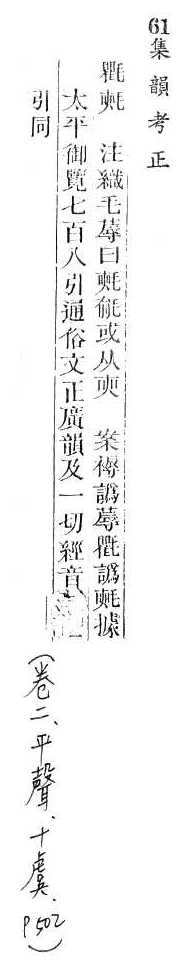 61集韻考正
氍 注織毛蓐曰 或从 案褥譌蓐氍譌 據
太平御覽七百八引通俗文正廣韻及一切經音
引同
(卷二、平聲、十虞、P502)